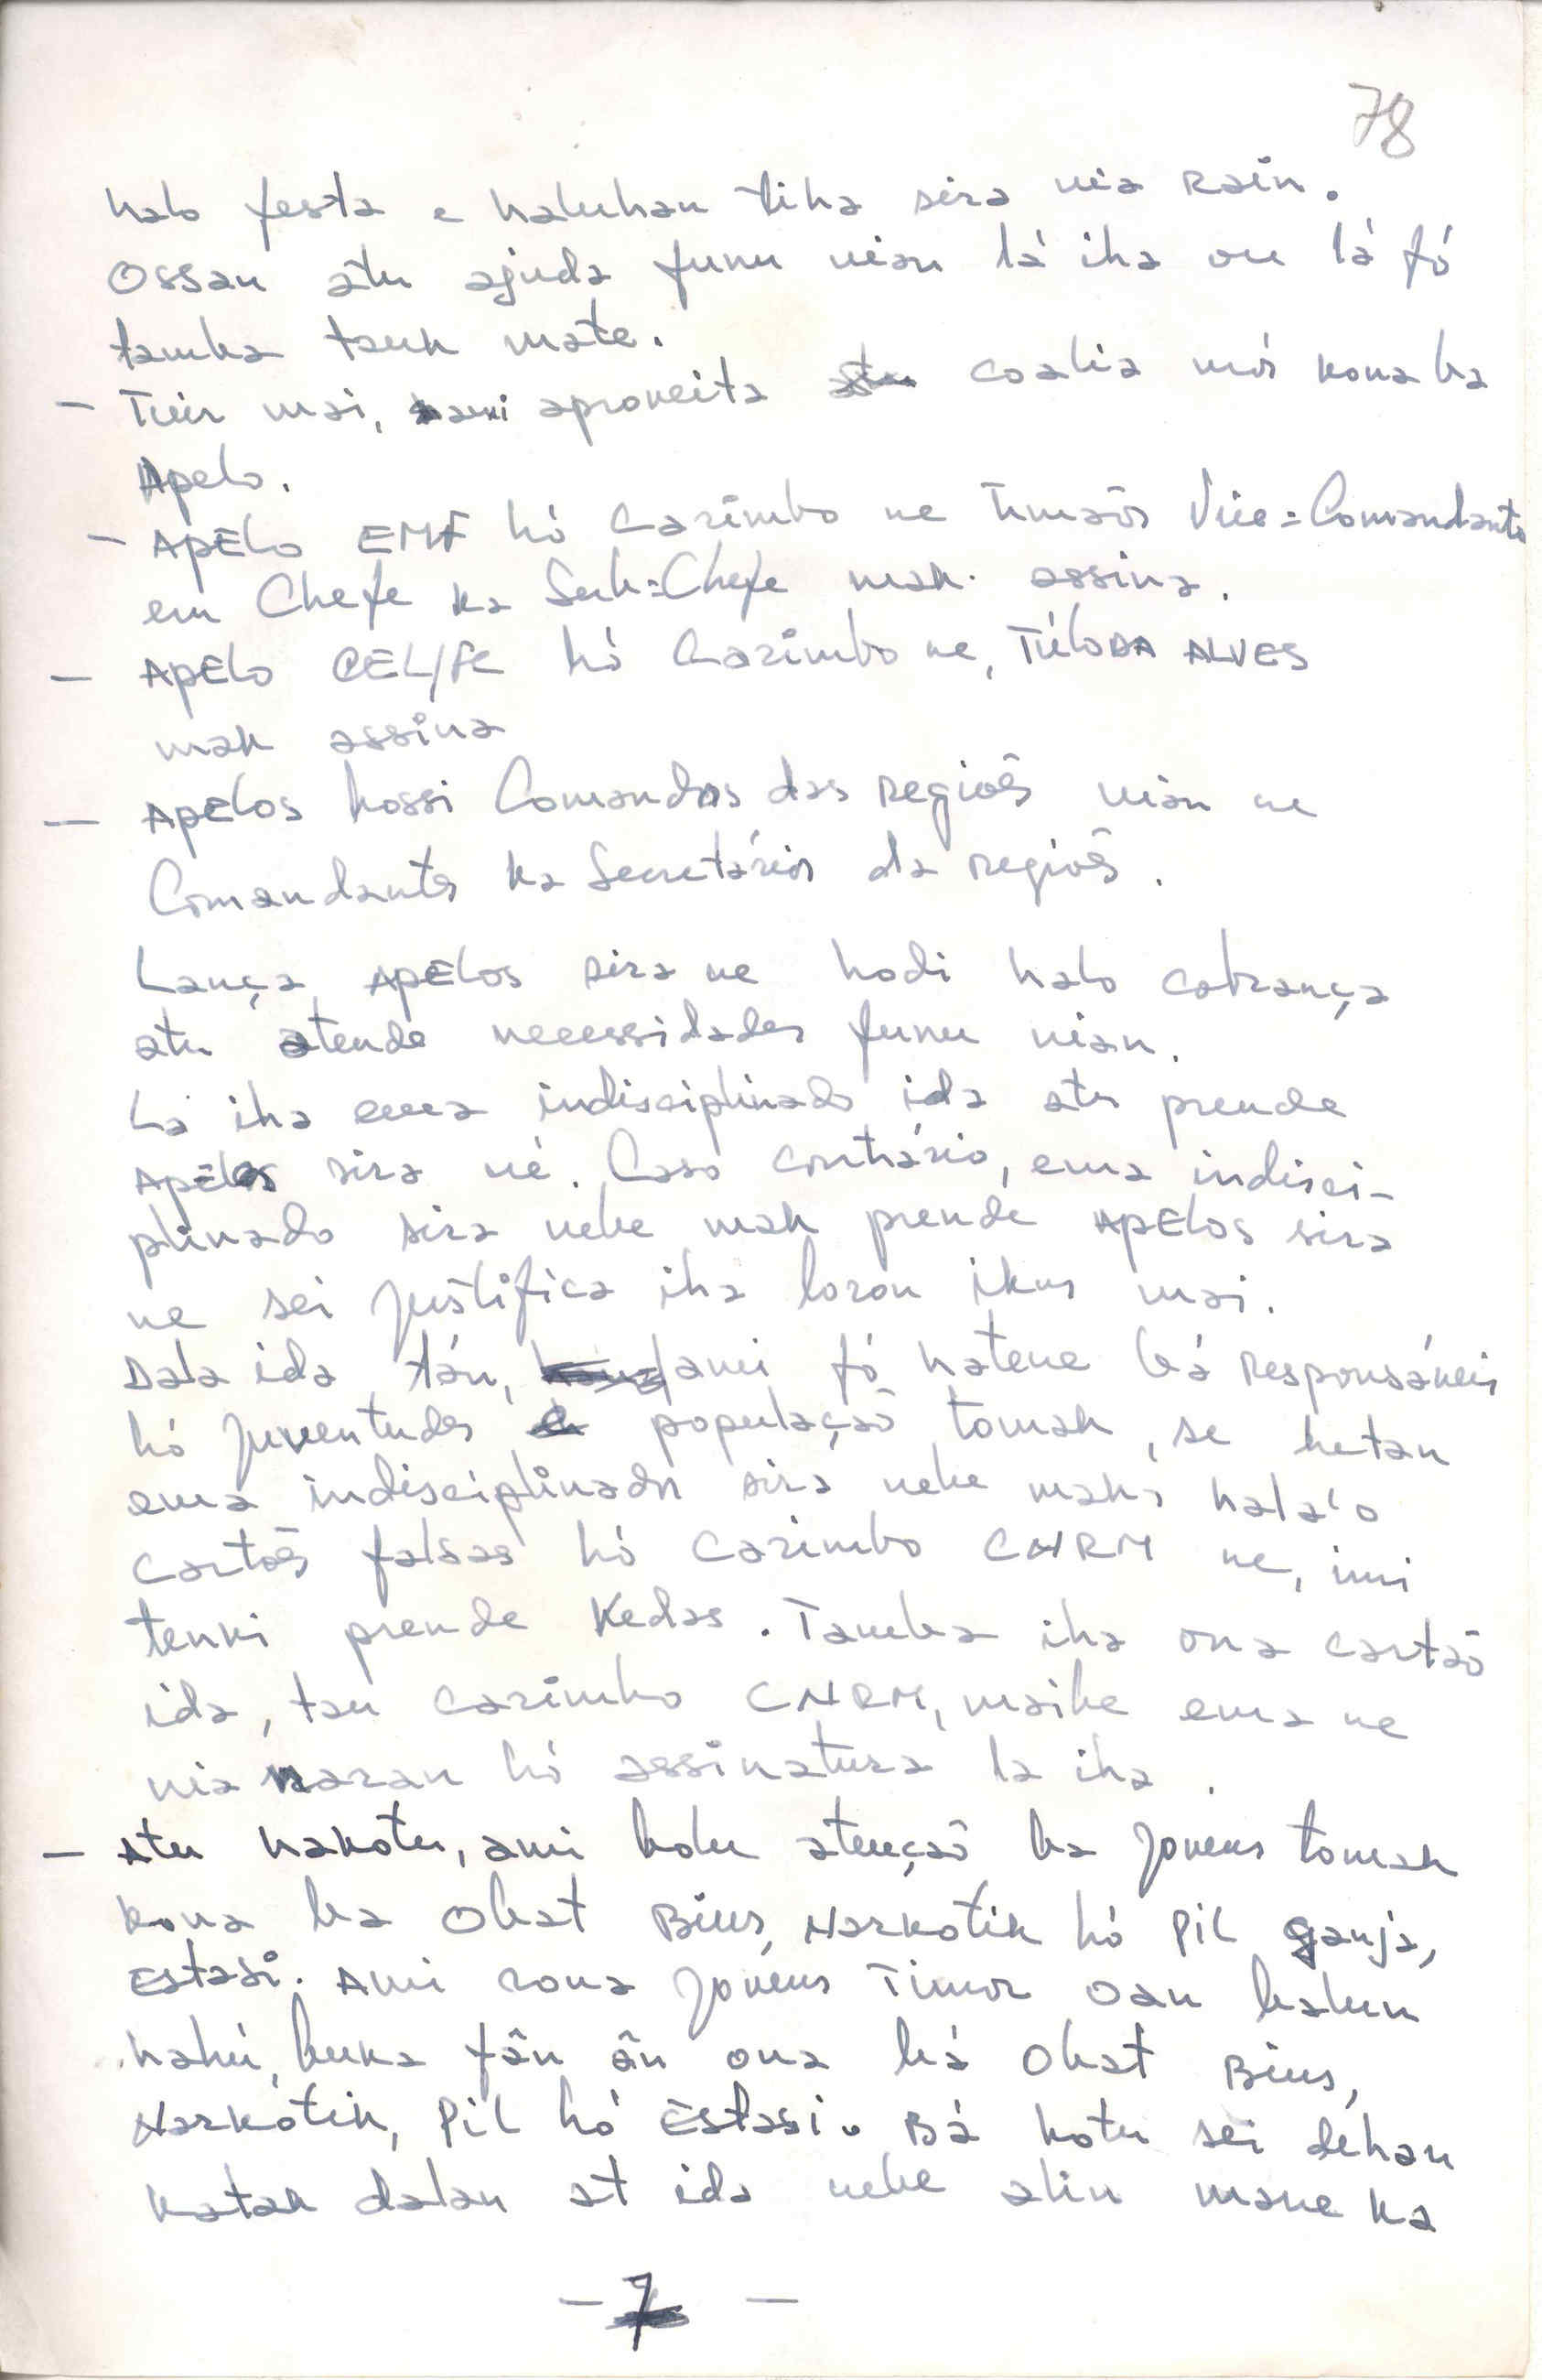 78
halo festa e haluhan tiha sira nia Rain.
Ossan atu ajuda funu nian lá iha ou lá fó
tamba tauk mate.
- Tuir mai, ami aproveita coalia mós kona ba
Apelo.
- APELO EMF hó Carimbo ne Vice=Comandante
em Chefe ka Sub=Chefe mak assina.
- APELO CEL/FC hó Carimbo ne, ALVES
mak assina
- APELOS hossi Comandos das Regiões nian ne
Comandantes ka Secretários da regiões.
Lança APELOS sira ne hodi halo cobrança
atu atende necessidades funu nian.
Lá iha ema indisciplinado ida atu prende
APELOS sira né. Caso contrário, ema indisci-
plinado sira nebe mak prende APELOS sira
ne sei justifica iha loron ikus mai.
Dala ida tán, ami fó hatene bá Responsáveis
hó juventudes população tomak, se hetan
ema indisciplinados sira nebe mak hala'o
cartões falsas hó Carimbo CNRM ne, imi
tenki prende Kedas. Tamba iha ona cartão
ida, tau carimbo CNRM, maibe ema ne
nia naran hó assinatura la iha.
- Atu hakotu, ami bolu atenção ba jovens tomak
kona ba Obat Bius, Narkotik hó Pil ganja,
Estasi. Ami rona jovens Timor Oan balun
hahú, buka fán án ona bá Obat Bius,
Narkótik, Pil hó Estasi. Bá hotu sei dehan
katak dalan at ida nebe alin mane ka
- 7 -